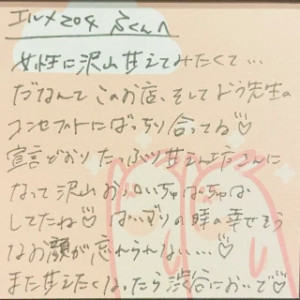 エルメ204 うくんへ
女性に沢山甘えてみたくて…
だなんて このお店、そして どう先生の
コンセプトにばっちり合ってる♡
宣言どおり たっぷり甘えん坊さんに
なって沢山 おっぱいちゅぱちゅぱ
してたね♡ ぱいずりの時の幸せそう
なお顔が忘れられない…♡
また甘えたくなったら渋谷においで♡